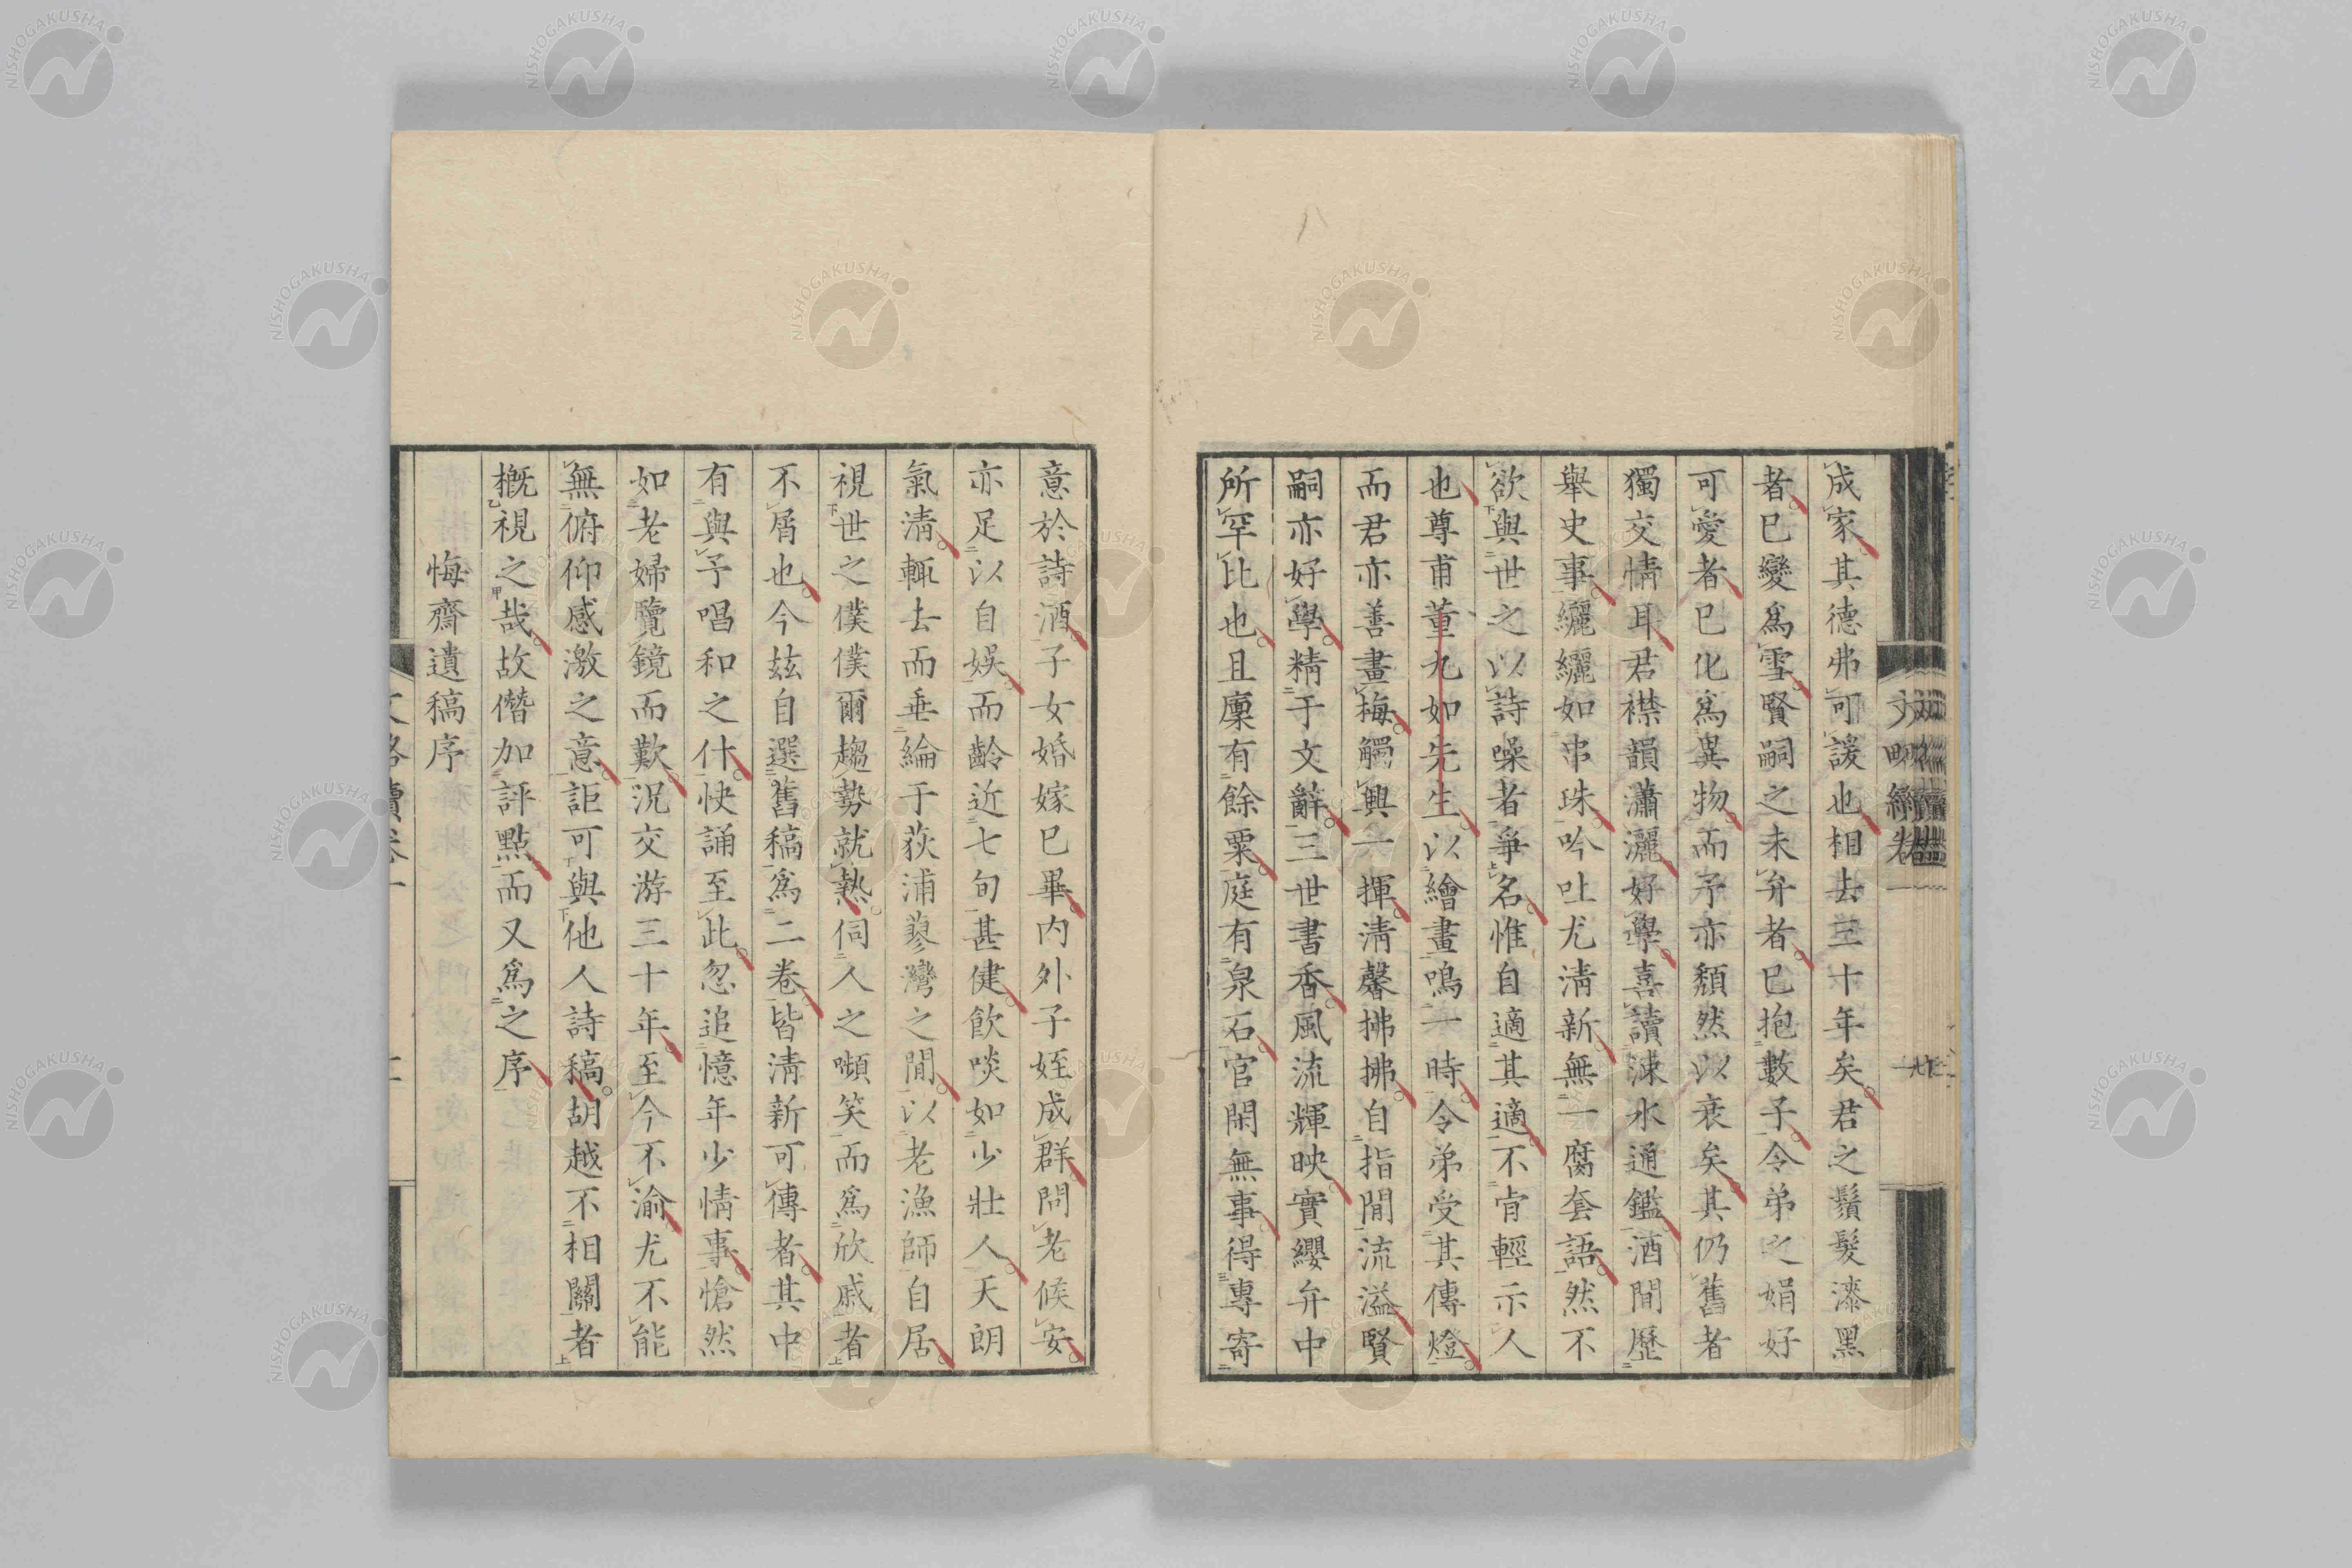 成家其德弗可諼也相去三十年矣君之鬚髮漆黑
者已變爲雪賢嗣之未弁者已抱數子令弟之娟好
可愛者已化爲異物而予亦頽然以衰矣其仍舊者
獨交情耳君襟韻瀟灑好學喜讀涑水通鑑酒間歷
舉史事纚纚如串珠吟吐尤淸新無一腐套語然不
欲與世之以詩噪者爭名惟自適其適不肯輕示人
也尊甫董九如先生以繪畫鳴一時令弟受其傳燈
而君亦善畫梅觸興一揮淸馨拂拂自指間流溢賢
嗣亦好學精于文辭三世書香風流輝映實纓弁中
所罕比也且廩有餘粟庭有泉石官閑無事得專寄
意於詩酒子女婚嫁已畢內外子姪成群問老候安
亦足以自娯而齡近七旬甚健飮啖如少壯人天朗
氣淸輒去而垂綸于荻浦蓼灣之間以老漁師自居
視世之僕僕爾趨勢就熱伺人之嚬笑而爲欣戚者
不屑也今玆自選舊稿爲二卷皆淸新可傳者其中
有與予唱和之什快誦至此忽追憶年少情事愴然
如老婦覽鏡而歎況交游三十年至今不渝尤不能
無俯仰感激之意詎可與他人詩稿胡越不相關者
槪視之哉故僭加評點而又爲之序
悔齋遺稿序